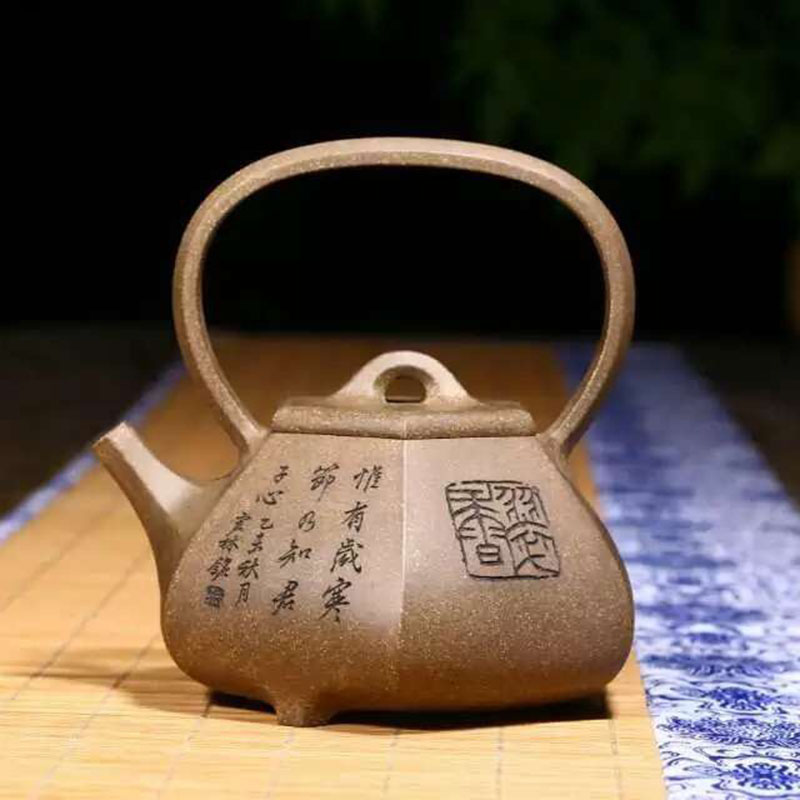 惟有歲寒
節乃知君
子心乙亥秋月
林銘